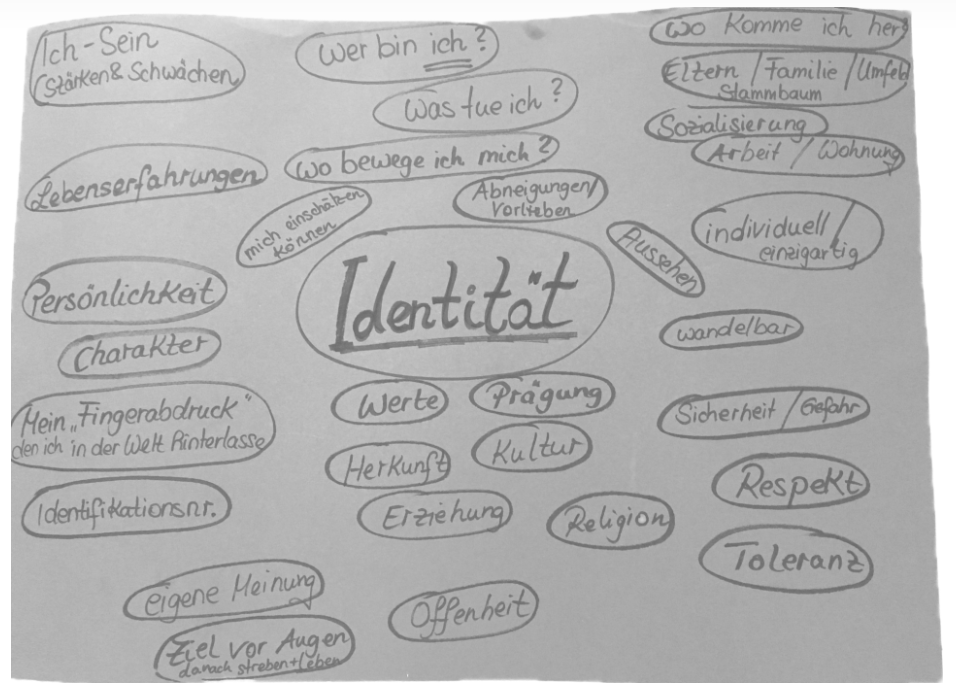 Ich-Sein
(Stärken & Schwächen)
Wer bin ich?
Was tue ich?
Wo bewege ich mich?
Wo komme ich her?
Eltern / Familie / Umfeld
Stammbaum
Sozialisierung
Arbeit / Wohnung
Lebenserfahrungen
mich einschätzen
können
Abneigungen/
Vorlieben
Aussehen
individuell /
einzigartig
Identität
Persönlichkeit
Charakter
wandelbar
Mein „Fingerabdruck“
den ich in der Welt hinterlasse
Werte
Prägung
Sicherheit / Gefahr
Herkunft
Kultur
Identifikationsnr.
Erziehung
Religion
Respekt
Toleranz
eigene Meinung
Offenheit
Ziel vor Augen
danach streben + leben